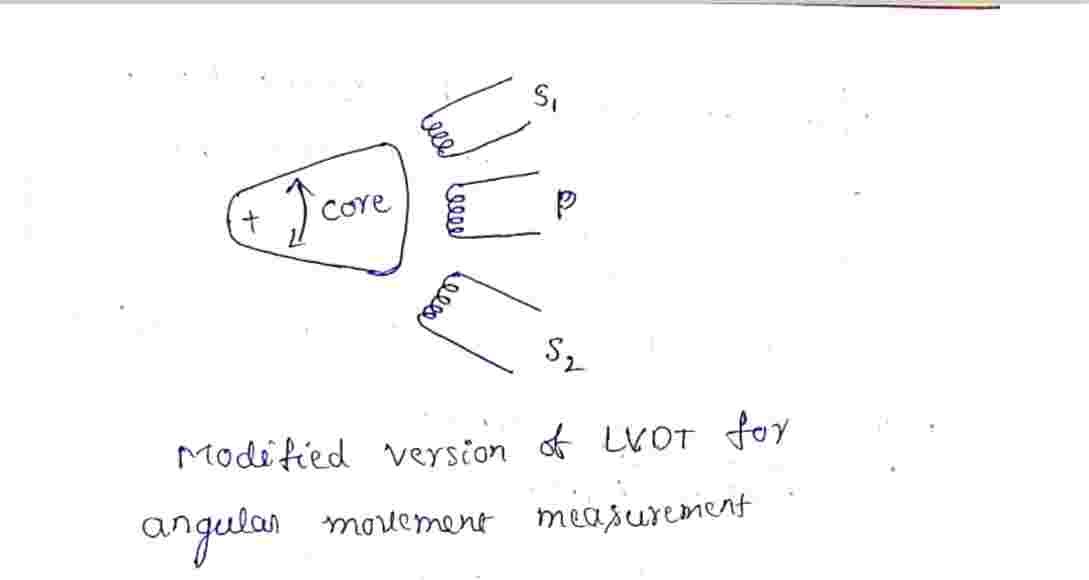 S1
+
core
P
S2
Modified version of LVDT for
angular movement measurement